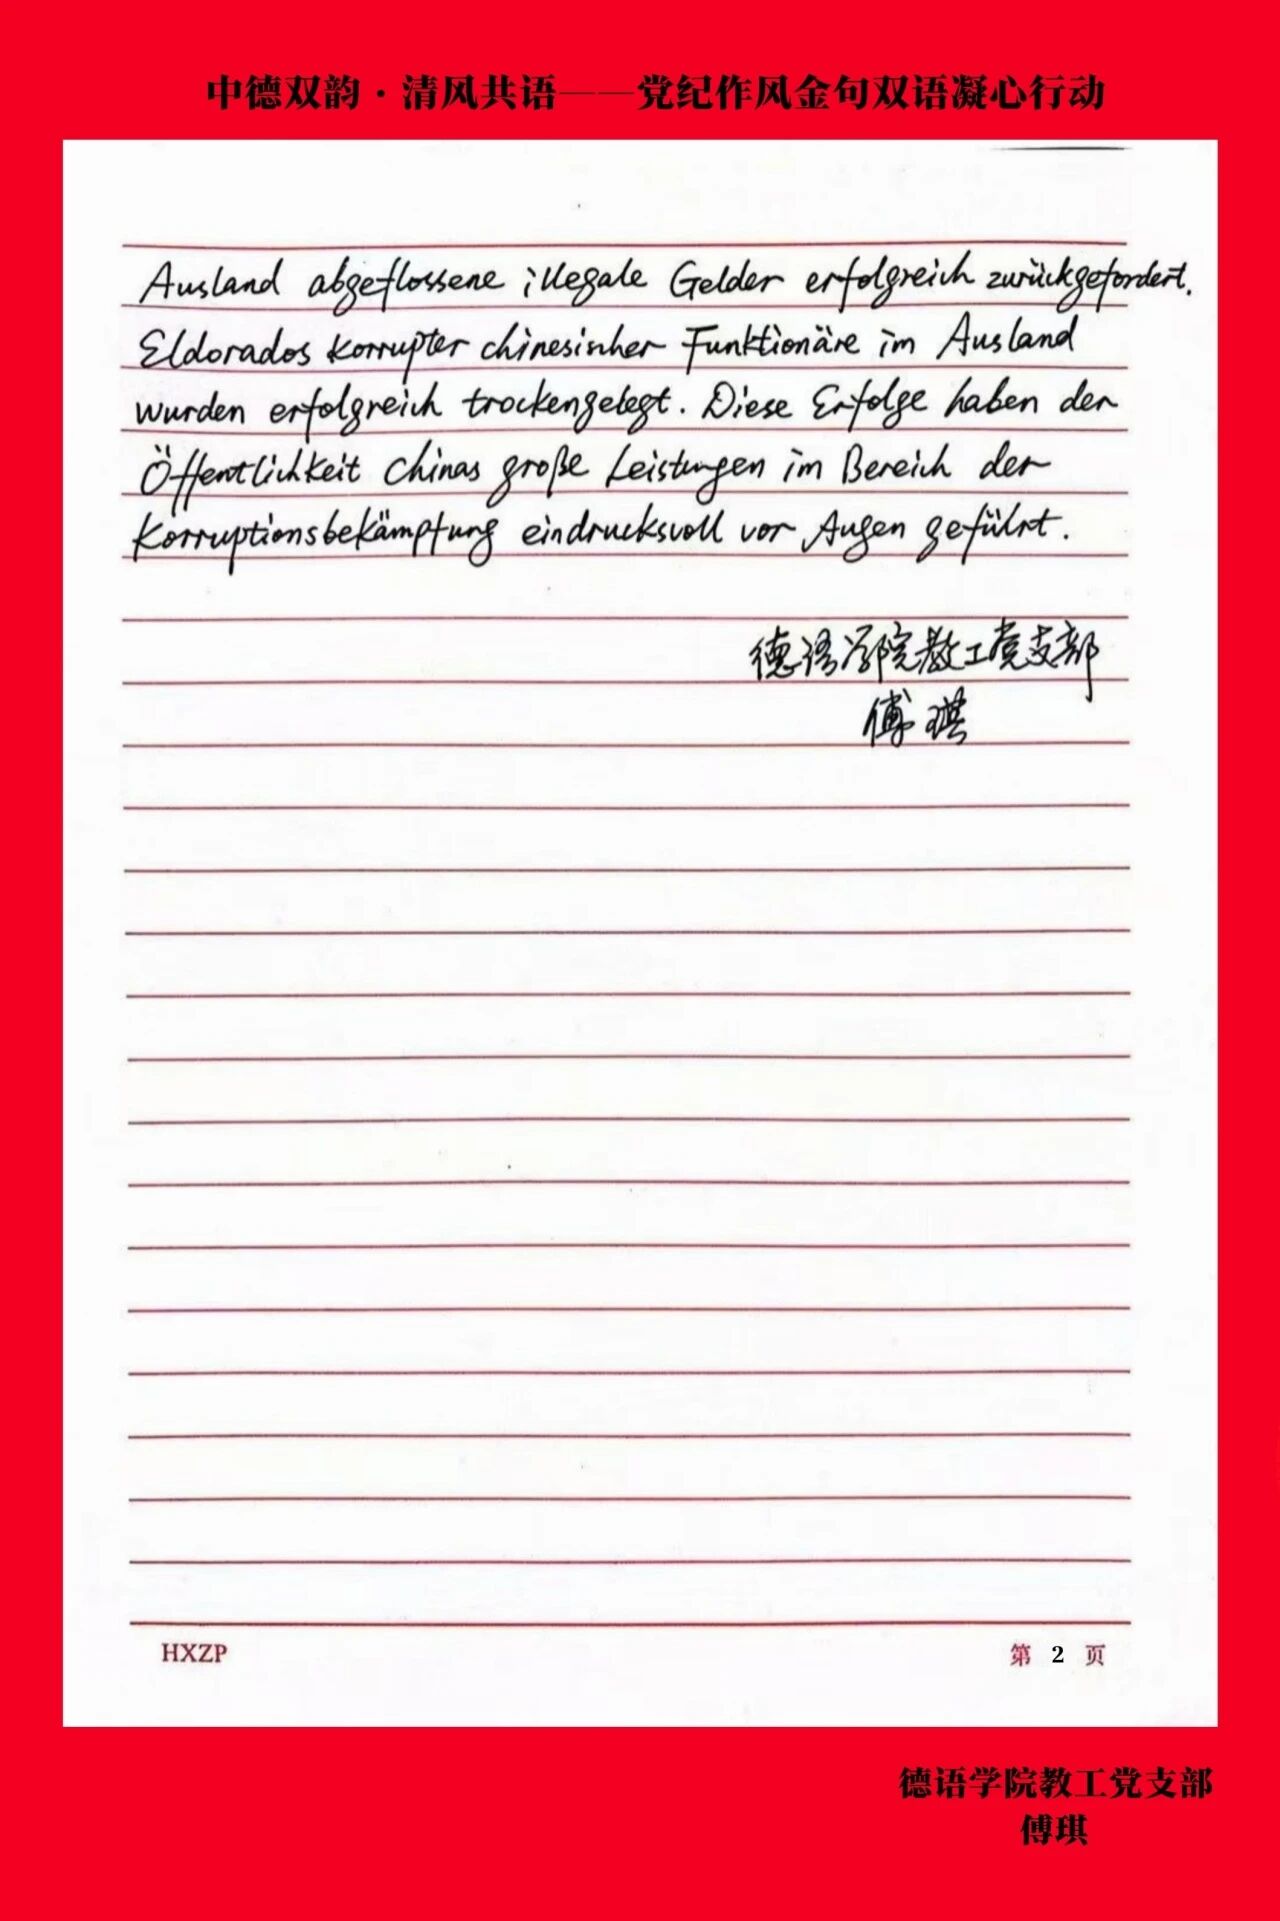 中德双韵·清风共语——党纪作风金句双语凝心行动
Ausland abgeflossene illegale Gelder erfolgreich zurückgefordert.
Eldorados korrupter chinesischer Funktionäre im Ausland
wurden erfolgreich trockengelegt. Diese Erfolge haben der
Öffentlichkeit Chinas große Leistungen im Bereich der
Korruptionsbekämpfung eindrucksvoll vor Augen geführt.
德语学院教工党支部
傅琪
HXZP
第 2 页
德语学院教工党支部
傅琪